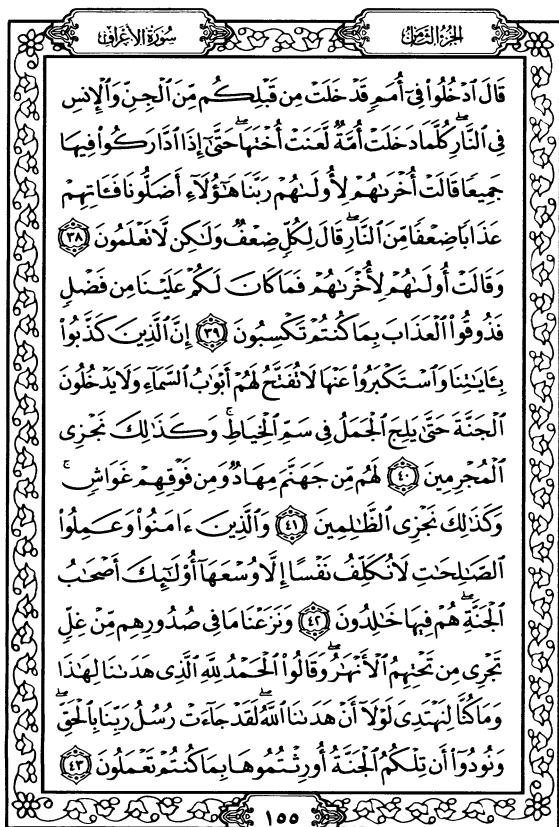 الجزء الثامن
سورة الأعراف
قَالَ ٱدْخُلُوا۟ فِىٓ أُمَمٍ قَدْ خَلَتْ مِن قَبْلِكُم مِّنَ ٱلْجِنِّ وَٱلْإِنسِ
فِى ٱلنَّارِ ۖ كُلَّمَا دَخَلَتْ أُمَّةٌ لَّعَنَتْ أُخْتَهَا ۖ حَتَّىٰٓ إِذَا ٱدَّارَكُوا۟ فِيهَا
جَمِيعًا قَالَتْ أُخْرَىٰهُمْ لِأُولَىٰهُمْ رَبَّنَا هَـٰٓؤُلَآءِ أَضَلُّونَا فَـَٔاتِهِمْ
عَذَابًا ضِعْفًا مِّنَ ٱلنَّارِ ۖ قَالَ لِكُلٍّ ضِعْفٌ وَلَـٰكِن لَّا تَعْلَمُونَ ٣٨
وَقَالَتْ أُولَىٰهُمْ لِأُخْرَىٰهُمْ فَمَا كَانَ لَكُمْ عَلَيْنَا مِن فَضْلٍ
فَذُوقُوا۟ ٱلْعَذَابَ بِمَا كُنتُمْ تَكْسِبُونَ ٣٩ إِنَّ ٱلَّذِينَ كَذَّبُوا۟
بِـَٔايَـٰتِنَا وَٱسْتَكْبَرُوا۟ عَنْهَا لَا تُفَتَّحُ لَهُمْ أَبْوَٰبُ ٱلسَّمَآءِ وَلَا يَدْخُلُونَ
ٱلْجَنَّةَ حَتَّىٰ يَلِجَ ٱلْجَمَلُ فِى سَمِّ ٱلْخِيَاطِ ۚ وَكَذَٰلِكَ نَجْزِى
ٱلْمُجْرِمِينَ ٤٠ لَهُم مِّن جَهَنَّمَ مِهَادٌ وَمِن فَوْقِهِمْ غَوَاشٍ ۚ
وَكَذَٰلِكَ نَجْزِى ٱلظَّـٰلِمِينَ ٤١ وَٱلَّذِينَ ءَامَنُوا۟ وَعَمِلُوا۟
ٱلصَّـٰلِحَـٰتِ لَا نُكَلِّفُ نَفْسًا إِلَّا وُسْعَهَآ أُو۟لَـٰٓئِكَ أَصْحَـٰبُ
ٱلْجَنَّةِ ۖ هُمْ فِيهَا خَـٰلِدُونَ ٤٢ وَنَزَعْنَا مَا فِى صُدُورِهِم مِّنْ غِلٍّ
تَجْرِى مِن تَحْتِهِمُ ٱلْأَنْهَـٰرُ ۖ وَقَالُوا۟ ٱلْحَمْدُ لِلَّهِ ٱلَّذِى هَدَىٰنَا لِهَـٰذَا
وَمَا كُنَّا لِنَهْتَدِىَ لَوْلَآ أَنْ هَدَىٰنَا ٱللَّهُ ۖ لَقَدْ جَآءَتْ رُسُلُ رَبِّنَا بِٱلْحَقِّ ۖ
وَنُودُوٓا۟ أَن تِلْكُمُ ٱلْجَنَّةُ أُورِثْتُمُوهَا بِمَا كُنتُمْ تَعْمَلُونَ ٤٣
١٥٥